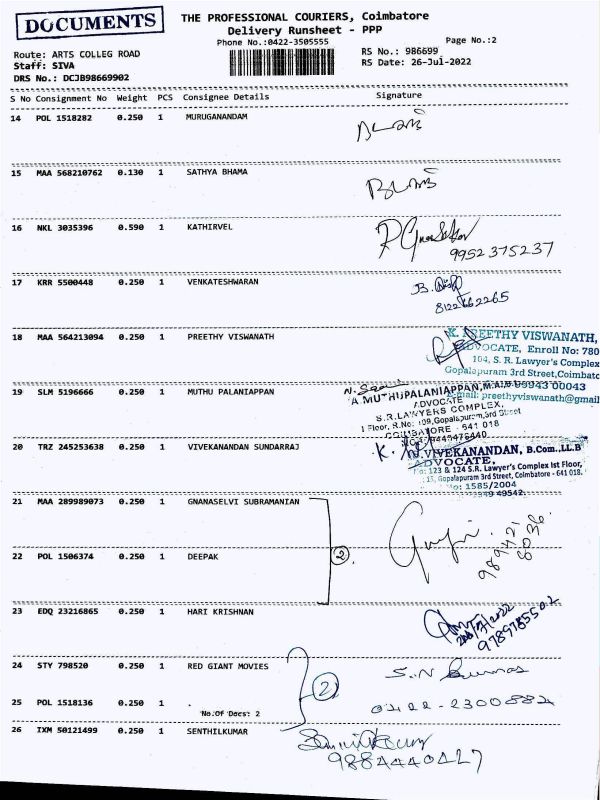 DOCUMENTS
THE PROFESSIONAL COURIERS, Coimbatore
Delivery Runsheet - PPP
Phone No.:0422-3505555
Page No.:2
Route: ARTS COLLEG ROAD
RS No.: 986699
Staff: SIVA
RS Date: 26-Jul-2022
DRS No.: DCJB98669902
S No Consignment No Weight PCS Consignee Details Signature
14 POL 1518282 0.250 1 MURUGANANDAM
15 MAA 568210762 0.130 1 SATHYA BHAMA
16 NKL 3035396 0.590 1 KATHIRVEL
9952375237
17 KRR 5500448 0.250 1 VENKATESHWARAN
8122662265
18 MAA 564213094 0.250 1 PREETHY VISWANATH
K. PREETHY VISWANATH,
ADVOCATE, Enroll No: 780
104, S. R. Lawyer's Complex
Gopalapuram 3rd Street, Coimbato
99943 00043
E-mail: preethyviswanath@gmail
19 SLM 5196666 0.250 1 MUTHU PALANIAPPAN
A.MUTHUPALANIAPPAN,M.A.,B.L.
ADVOCATE
S.R.LAWYERS COMPLEX,
I Floor, R.No: 109,Gopalapuram,3rd Street
COIMBATORE - 641 018
20 TRZ 245253638 0.250 1 VIVEKANANDAN SUNDARRAJ
VIVEKANANDAN, B.Com.,LL.B
ADVOCATE,
No: 123 & 124 S.R. Lawyer's Complex Ist Floor,
Gopalapuram 3rd Street, Coimbatore - 641 018.
No: 1585/2004
49542
21 MAA 289989073 0.250 1 GNANASELVI SUBRAMANIAN
22 POL 1506374 0.250 1 DEEPAK
2
989421
8036
23 EDQ 23216865 0.250 1 HARI KRISHNAN
9789785502
24 STY 798520 0.250 1 RED GIANT MOVIES
2
25 POL 1518136 0.250 1 .
No.Of Docs: 2
0422-2300882
26 IXM 50121499 0.250 1 SENTHILKUMAR
9884440427